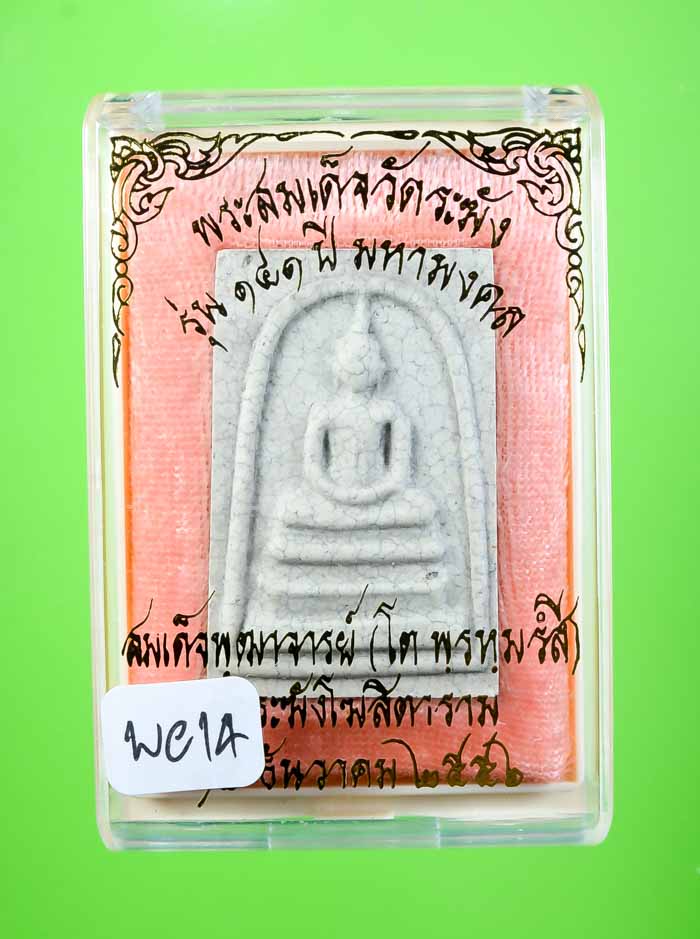 พระสมเด็จวัดระฆัง
รุ่น ๑๔๑ ปี มหามงคล
สมเด็จพุฒาจารย์ (โต พฺรหฺมรํสี)
ระฆังโฆสิตาราม
ธันวาคม ๒๕๕๖
WC14